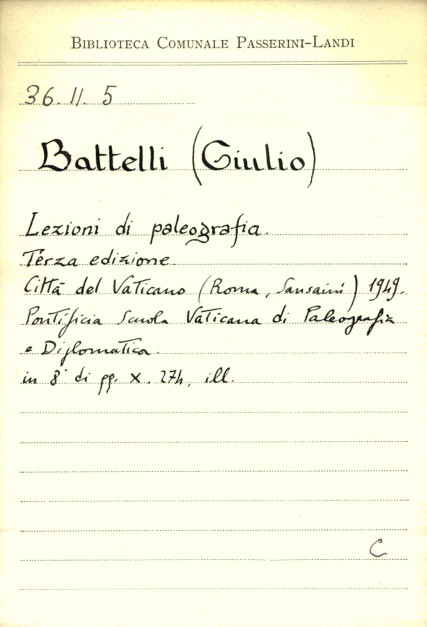 BIBLIOTECA COMUNALE PASSERINI-LANDI
36.II.5
Battelli (Giulio)
Lezioni di paleografia.
Terza edizione.
Città del Vaticano (Roma, Sansaini) 1949.
Pontificia Scuola Vaticana di Paleografia
e Diplomatica.
in 8° di pp. X. 274, ill.
C